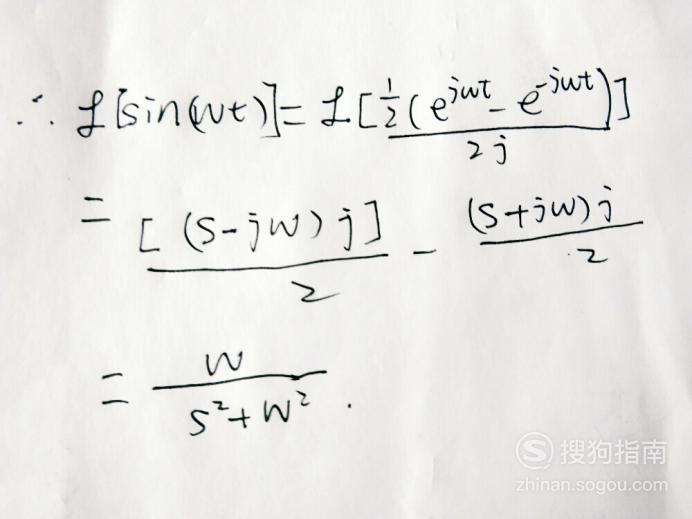 ∴ ℒ[sin(wt)] = ℒ[½(e^{jwt} - e^{-jwt})/2j]
= [(s-jw)j]/2 - (s+jw)j/2
= w/(s²+w²).
搜狗指南
zhinan.sogou.com